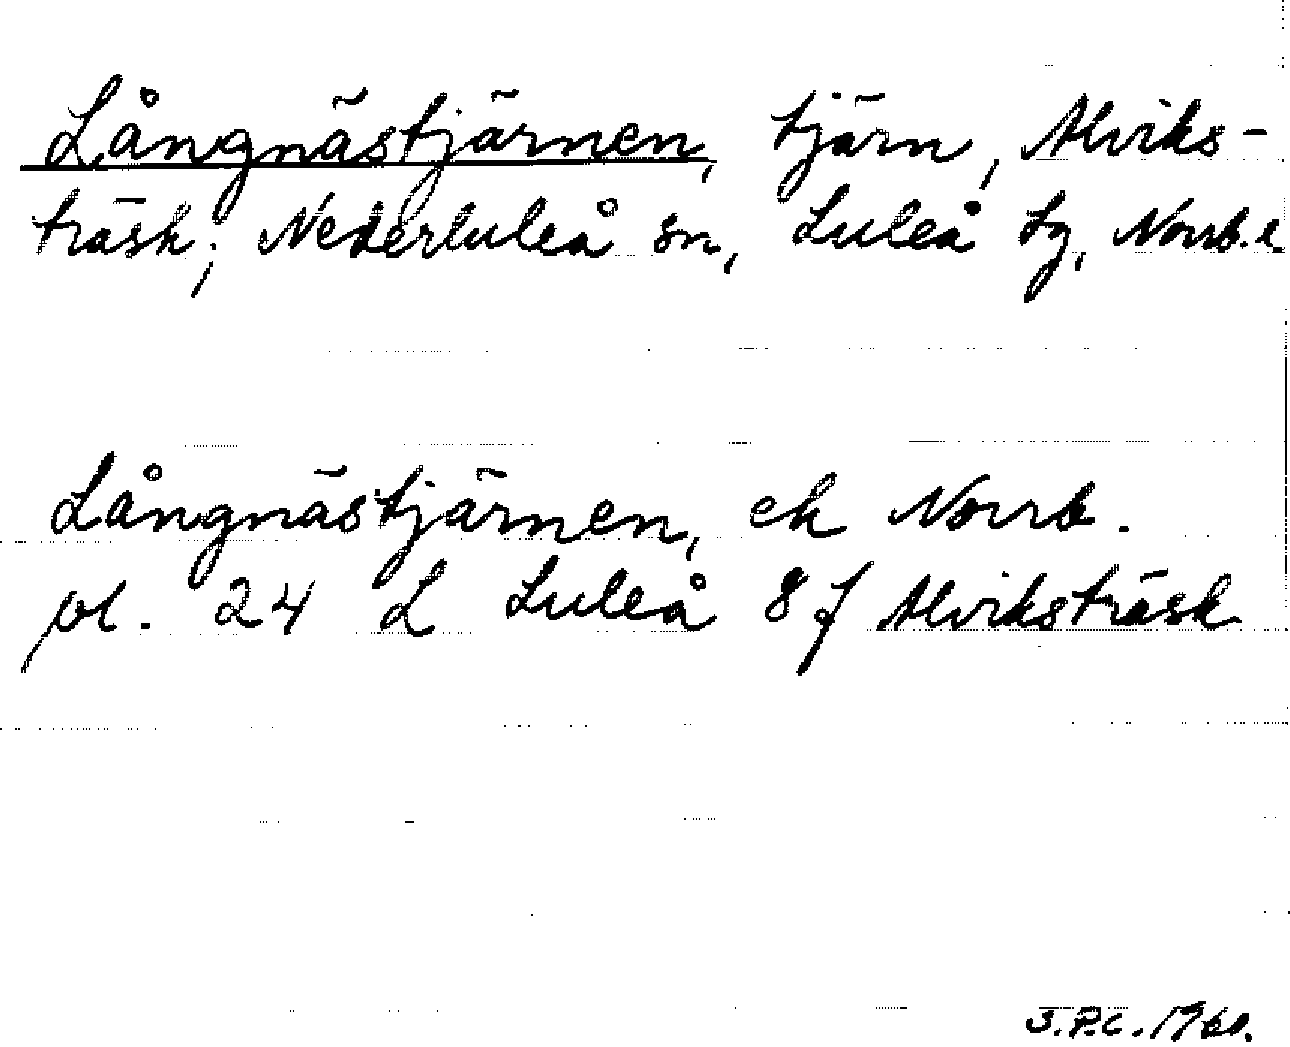 Långnästjärnen, tjärn, Alviks-
träsk, Nederluleå sn, Luleå tg, Norrb. l.
Långnästjärnen, ek Norrb.
pl. 24 L Luleå 8 f Alviksträsk
S.P.C. 1960.